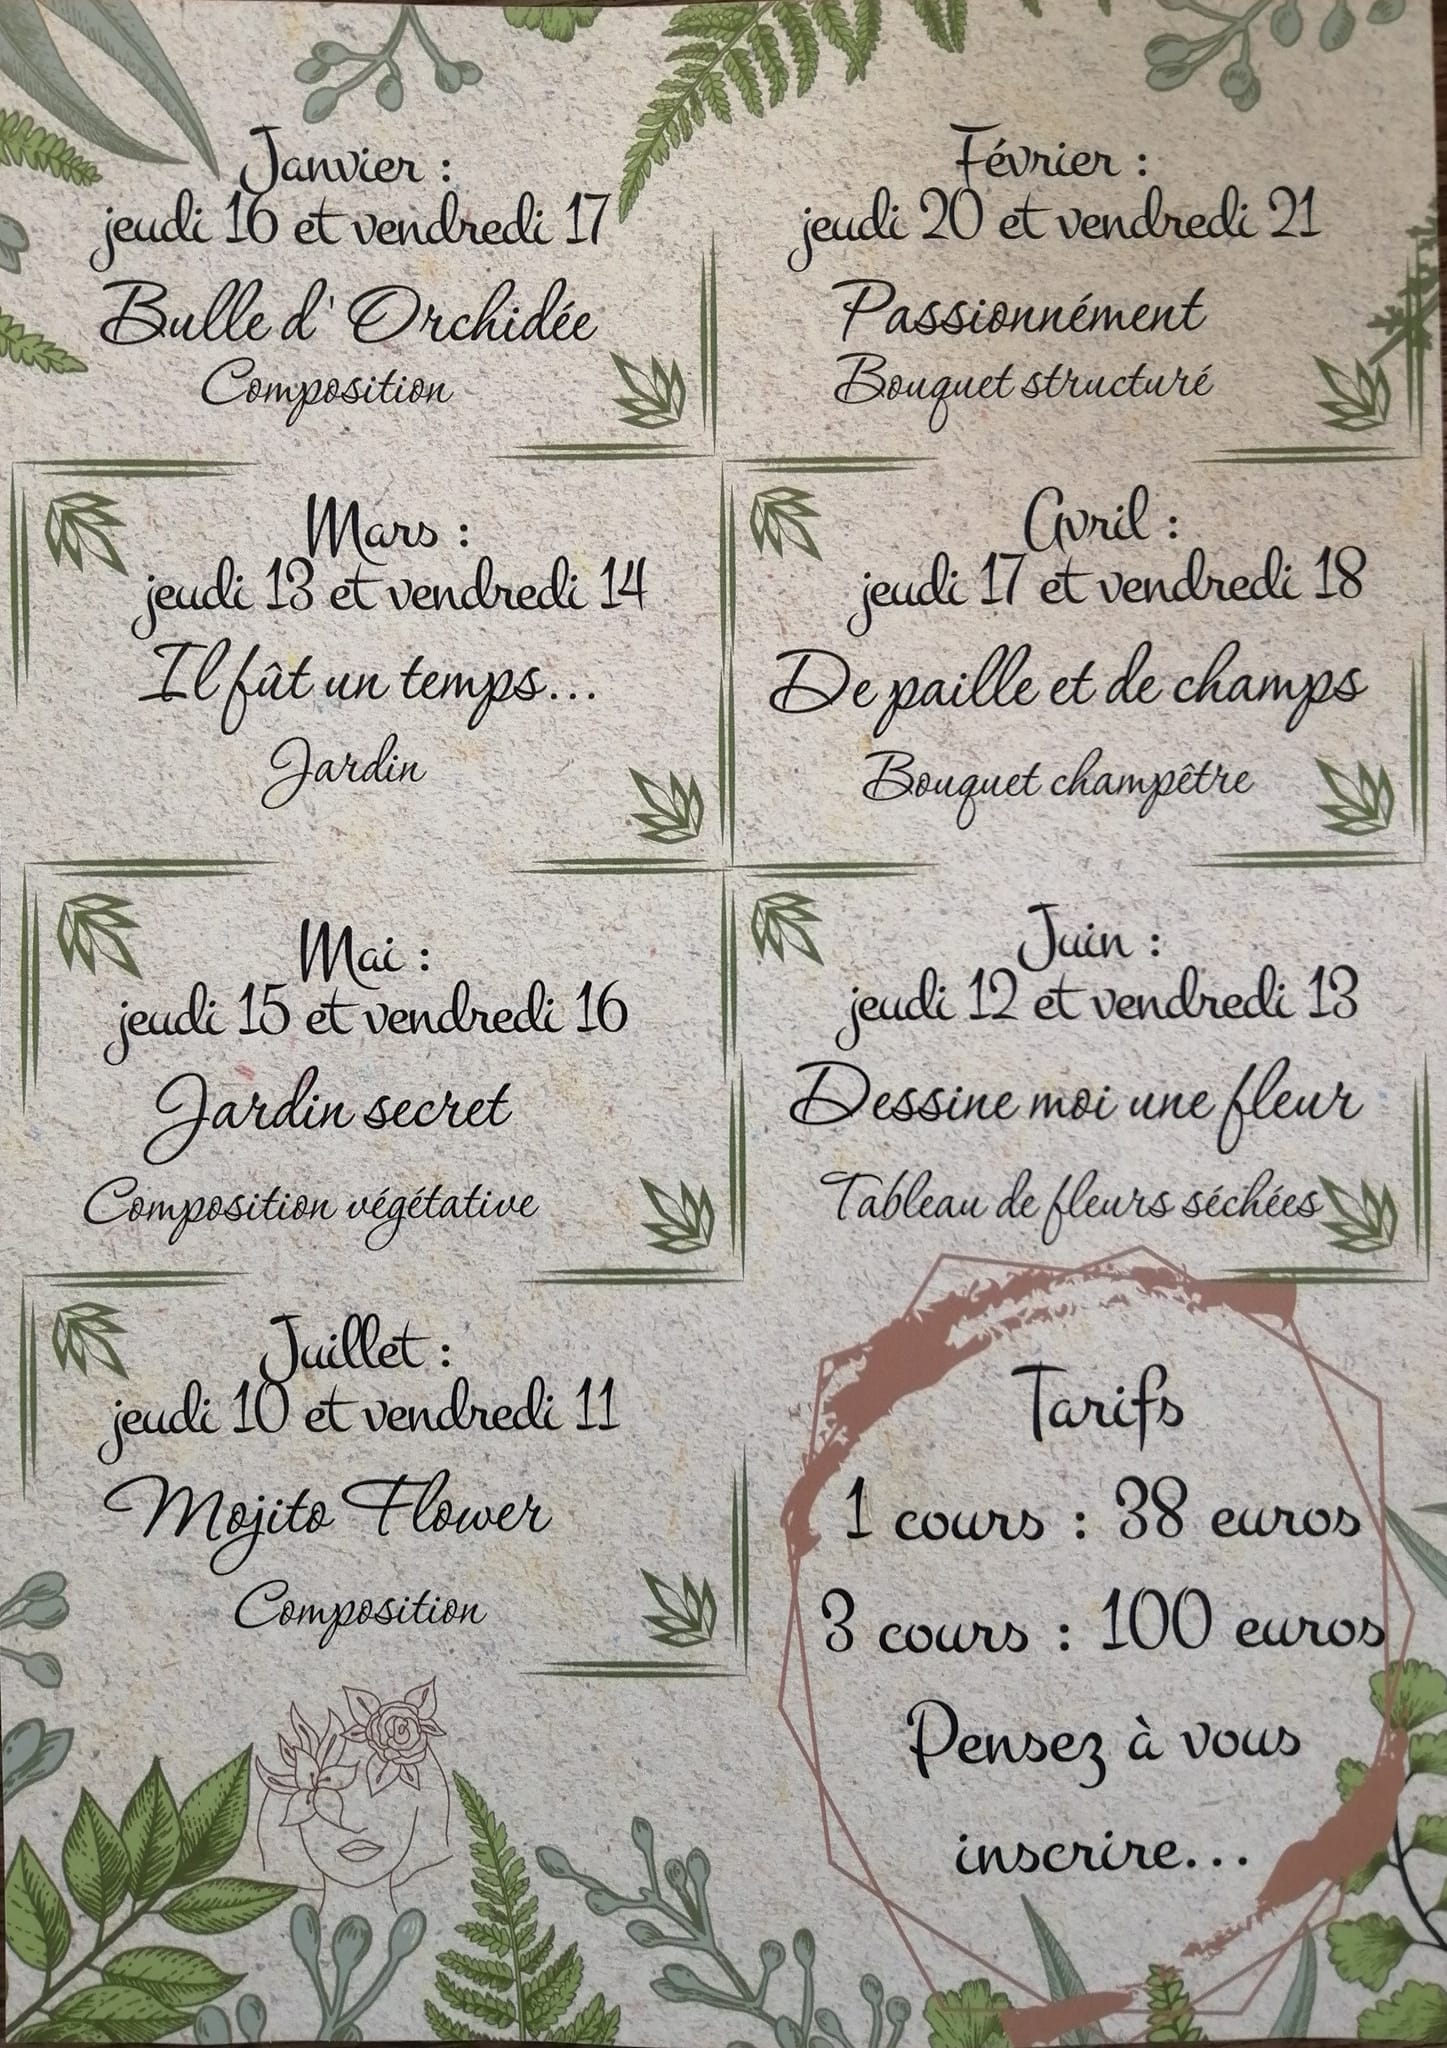 Janvier :
jeudi 16 et vendredi 17
Bulle d' Orchidée
Composition
Février :
jeudi 20 et vendredi 21
Passionnément
Bouquet structuré
Mars :
jeudi 13 et vendredi 14
Il fût un temps...
Jardin
Avril :
jeudi 17 et vendredi 18
De paille et de champs
Bouquet champêtre
Mai :
jeudi 15 et vendredi 16
Jardin secret
Composition végétative
Juin :
jeudi 12 et vendredi 13
Dessine moi une fleur
Tableau de fleurs séchées
Juillet :
jeudi 10 et vendredi 11
Mojito Flower
Composition
Tarifs
1 cours : 38 euros
3 cours : 100 euros
Pensez à vous
inscrire...